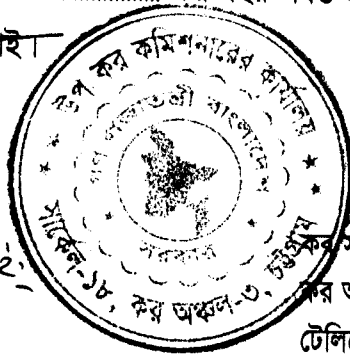 ই।
উপ কর কমিশনারের কার্যালয়
গণ প্রজাতন্ত্রী বাংলাদেশ
সরকার
সার্কেল-১৮, কর অঞ্চল-৩, চট্টগ্রাম
কর
টেলি